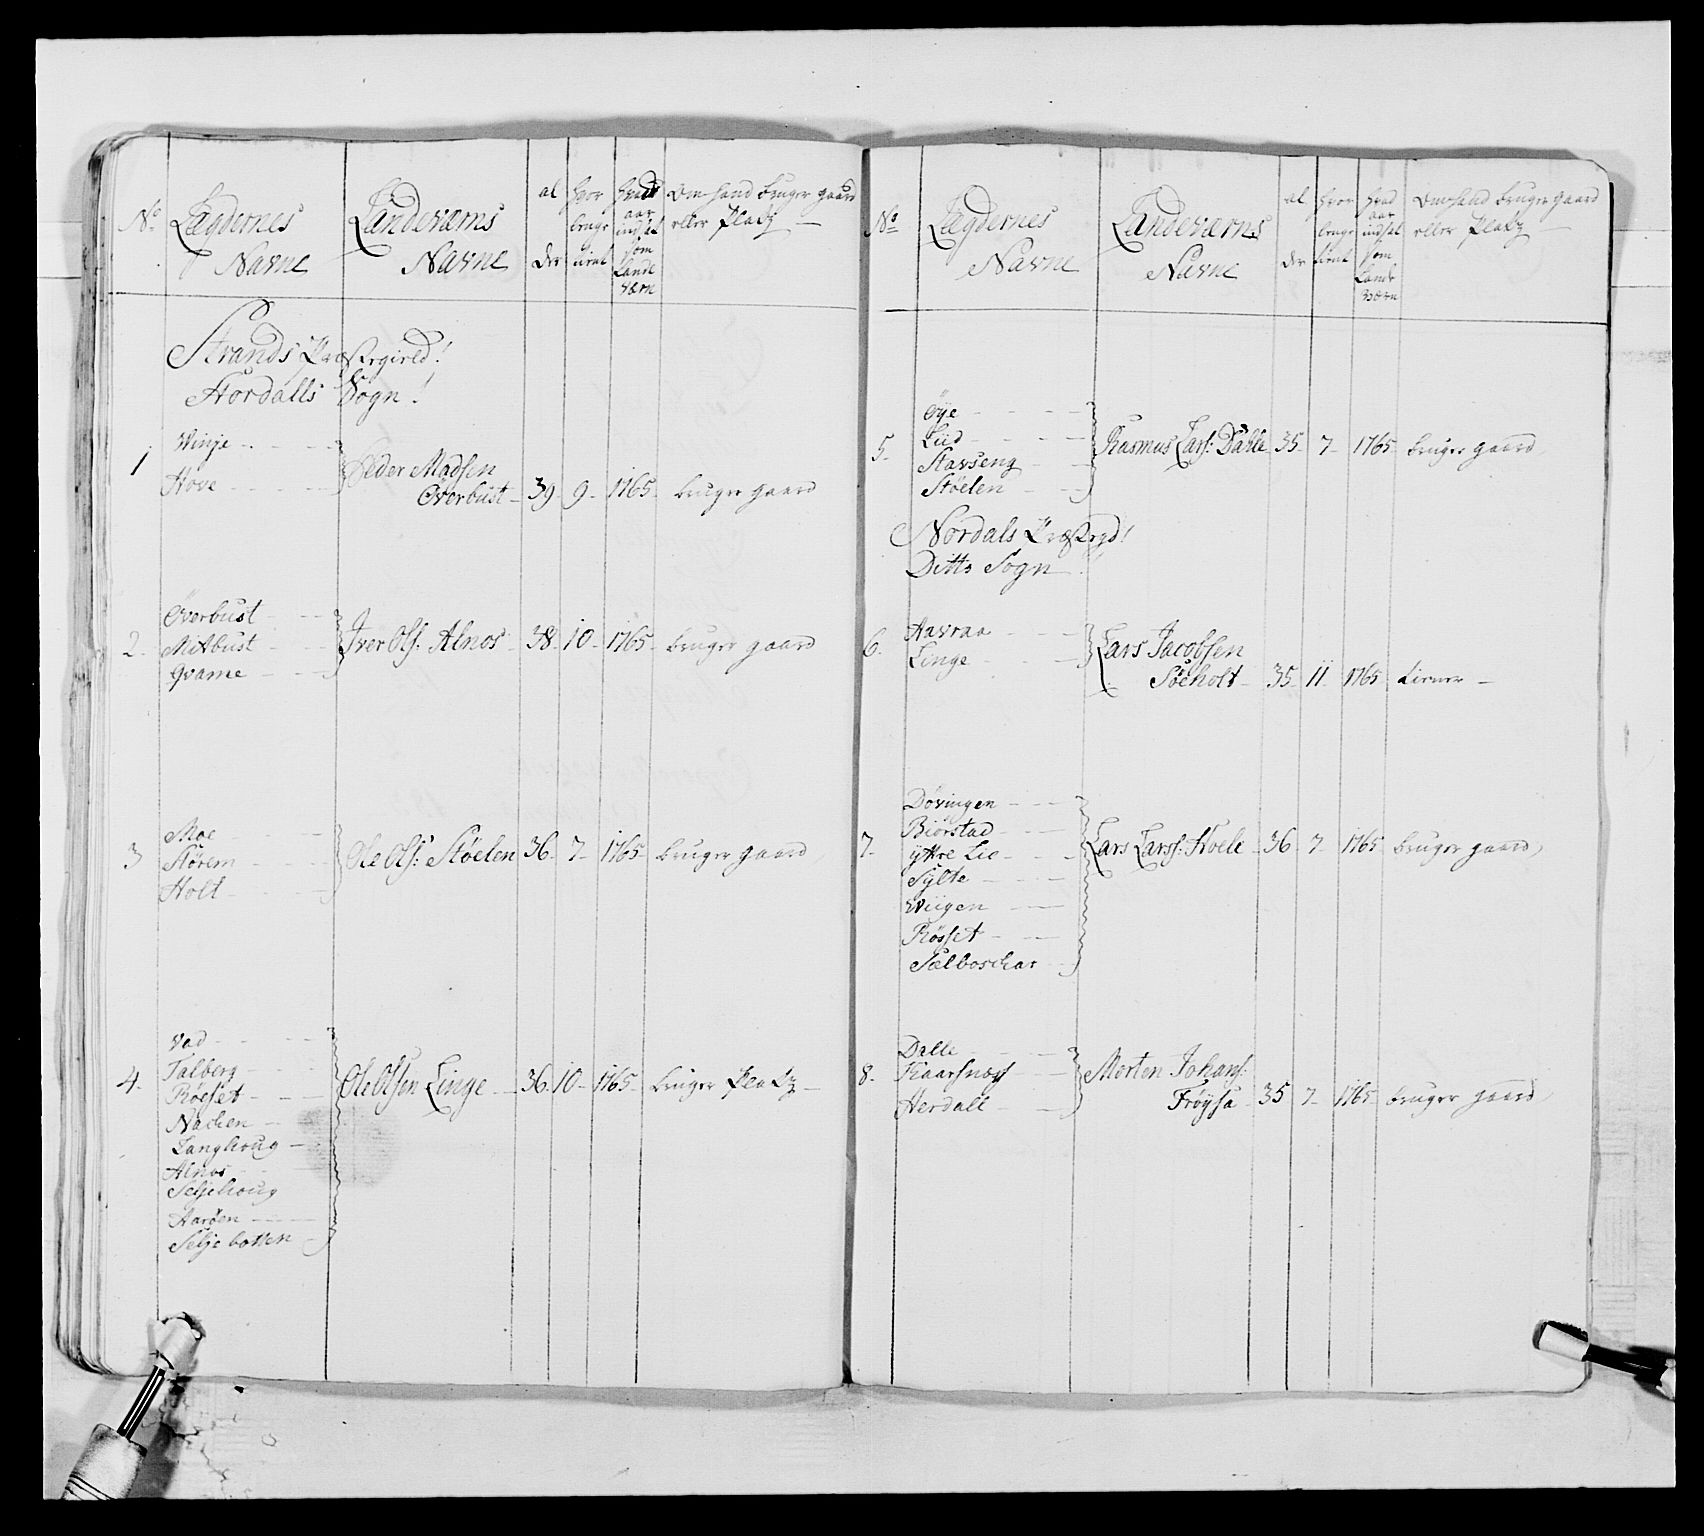 No Lægdernes Navne Landeværns Navne al der hvor lenge tient hvad aar indsat som Lande værn Om hand bruger gaard eller Platz
Strands Præstegield!
Stordalls Sogn!
1 Winje
Hove
Peder Madsen
Överbust 39 9 1765 bruger gaard
2. Överbust
Mitbust
Gvame
Iver Ols: Alnos 38 10 1765 bruger gaard
3 Moe
Störem
Holt
Ole Ols: Stöelen 36 7 1765 bruger gaard
4. Vad
Talberg
Röeset
Nachen
Langhoug
Alnos
Seljehoug
Aaröen
Selje botten
Ole Olsen Linge 36 10 1765 bruger Platz
No Lægdernes Navne Landeværns Navne al der hvor lenge tient hvad aar indsat som Lande værn Om hand bruger gaard eller Platz
5. Öye
Liid
Stavseng
Stöelen
Rasmus Lars: Dahle 35 7 1765 bruger gaard
Nordals Præstegd!
Ditto Sogn!
6. Havraa
Linge
Lars Jacobsen
Söeholt 35 11 1765 tiener
7. Dövingen
Biörstad
yttre Lie
Sylte
Wiigen
Rösset
Sælboschar
Lars Larss: Hoele 36 7 1765 bruger gaard
8. Dalle
Kaarsnæss
Herdall
Morten Johans:
Fröysa 35 7 1765 bruger gaard